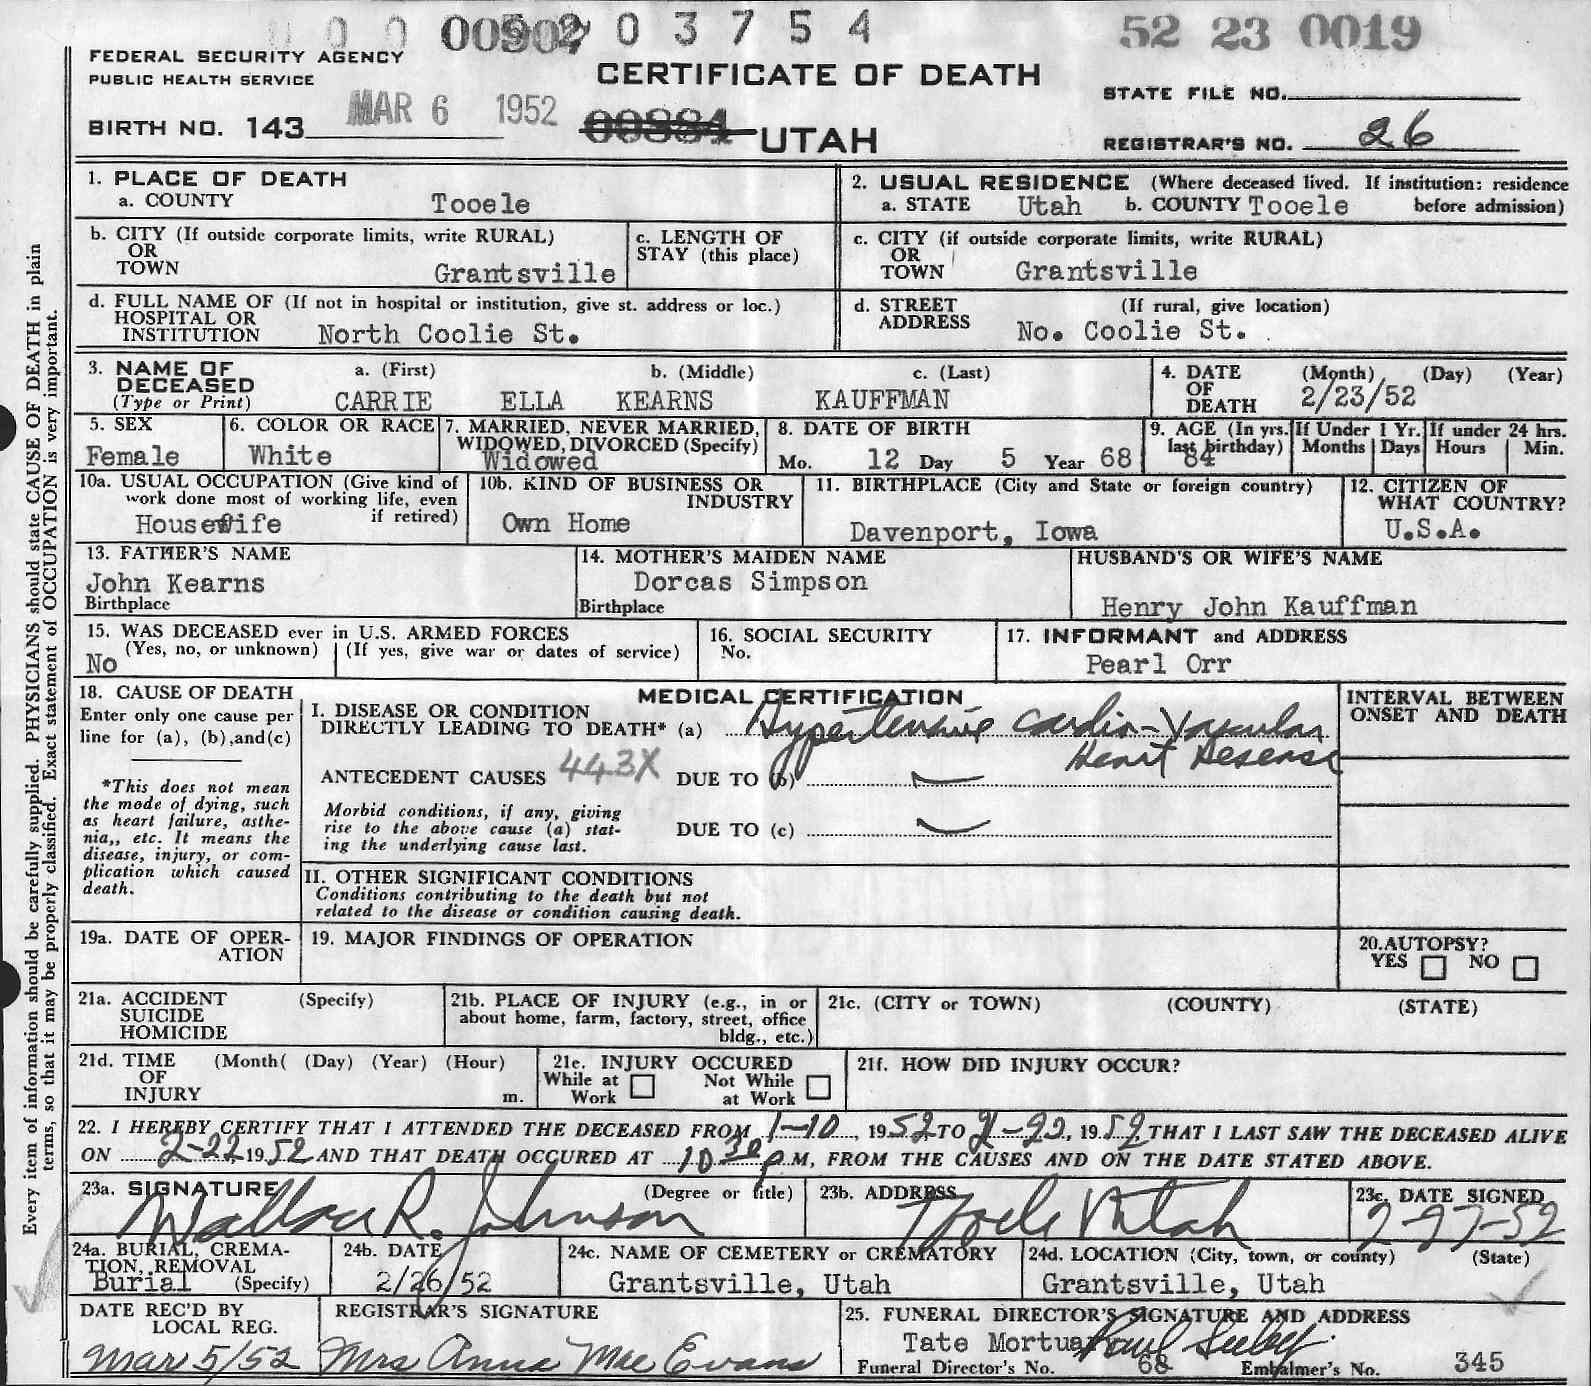 0 0 0 00902 5 2 0 3 7 5 4
52 23 0019
FEDERAL SECURITY AGENCY
PUBLIC HEALTH SERVICE
CERTIFICATE OF DEATH
STATE FILE NO.
BIRTH NO. 143
MAR 6 1952
00884 UTAH
REGISTRAR'S NO. 26
1. PLACE OF DEATH
a. COUNTY Tooele
2. USUAL RESIDENCE (Where deceased lived. If institution: residence
a. STATE Utah b. COUNTY Tooele before admission)
b. CITY (If outside corporate limits, write RURAL)
OR
TOWN Grantsville
c. LENGTH OF
STAY (this place)
c. CITY (if outside corporate limits, write RURAL)
OR
TOWN Grantsville
d. FULL NAME OF (If not in hospital or institution, give st. address or loc.)
HOSPITAL OR
INSTITUTION North Coolie St.
d. STREET (If rural, give location)
ADDRESS No. Coolie St.
3. NAME OF a. (First) b. (Middle) c. (Last)
DECEASED
(Type or Print) CARRIE ELLA KEARNS KAUFFMAN
4. DATE (Month) (Day) (Year)
OF
DEATH 2/23/52
5. SEX
Female
6. COLOR OR RACE
White
7. MARRIED, NEVER MARRIED,
WIDOWED, DIVORCED (Specify)
Widowed
8. DATE OF BIRTH
Mo. 12 Day 5 Year 68
9. AGE (In yrs.
last birthday)
84
If Under 1 Yr.
Months Days
If under 24 hrs.
Hours Min.
10a. USUAL OCCUPATION (Give kind of
work done most of working life, even
if retired)
Housewife
10b. KIND OF BUSINESS OR
INDUSTRY
Own Home
11. BIRTHPLACE (City and State or foreign country)
Davenport, Iowa
12. CITIZEN OF
WHAT COUNTRY?
U.S.A.
13. FATHER'S NAME
John Kearns
Birthplace
14. MOTHER'S MAIDEN NAME
Dorcas Simpson
Birthplace
HUSBAND'S OR WIFE'S NAME
Henry John Kauffman
15. WAS DECEASED ever in U.S. ARMED FORCES
(Yes, no, or unknown) (If yes, give war or dates of service)
No
16. SOCIAL SECURITY
No.
17. INFORMANT and ADDRESS
Pearl Orr
18. CAUSE OF DEATH
Enter only one cause per
line for (a), (b),and(c)
*This does not mean
the mode of dying, such
as heart failure, asthe-
nia,, etc. It means the
disease, injury, or com-
plication which caused
death.
MEDICAL CERTIFICATION
I. DISEASE OR CONDITION
DIRECTLY LEADING TO DEATH* (a) Hypertensive cardio-Vascular
Heart Desease
ANTECEDENT CAUSES 443X DUE TO (b)
Morbid conditions, if any, giving
rise to the above cause (a) stat-
ing the underlying cause last.
DUE TO (c)
INTERVAL BETWEEN
ONSET AND DEATH
II. OTHER SIGNIFICANT CONDITIONS
Conditions contributing to the death but not
related to the disease or condition causing death.
19a. DATE OF OPER-
ATION
19. MAJOR FINDINGS OF OPERATION
20.AUTOPSY?
YES NO
21a. ACCIDENT (Specify)
SUICIDE
HOMICIDE
21b. PLACE OF INJURY (e.g., in or
about home, farm, factory, street, office
bldg., etc.)
21c. (CITY or TOWN) (COUNTY) (STATE)
21d. TIME (Month( (Day) (Year) (Hour)
OF
INJURY m.
21e. INJURY OCCURED
While at Not While
Work at Work
21f. HOW DID INJURY OCCUR?
22. I HEREBY CERTIFY THAT I ATTENDED THE DECEASED FROM 1-10, 1952 TO 2-22, 1952 THAT I LAST SAW THE DECEASED ALIVE
ON 2-22, 1952 AND THAT DEATH OCCURED AT 10 30 P.M, FROM THE CAUSES AND ON THE DATE STATED ABOVE.
23a. SIGNATURE (Degree or title)
Wallace R. Johnson
23b. ADDRESS
Tooele Utah
23c. DATE SIGNED
2-27-52
24a. BURIAL, CREMA-
TION, REMOVAL
Burial (Specify)
24b. DATE
2/26/52
24c. NAME OF CEMETERY or CREMATORY
Grantsville, Utah
24d. LOCATION (City, town, or county) (State)
Grantsville, Utah
DATE REC'D BY
LOCAL REG.
Mar 5/52
REGISTRAR'S SIGNATURE
Mrs Anna Mae Evans
25. FUNERAL DIRECTOR'S SIGNATURE AND ADDRESS
Tate Mortuary
Funeral Director's No. 68 Embalmer's No. 345
Every item of information should be carefully supplied. PHYSICIANS should state CAUSE OF DEATH in plain
terms, so that it may be properly classified. Exact statement of OCCUPATION is very important.